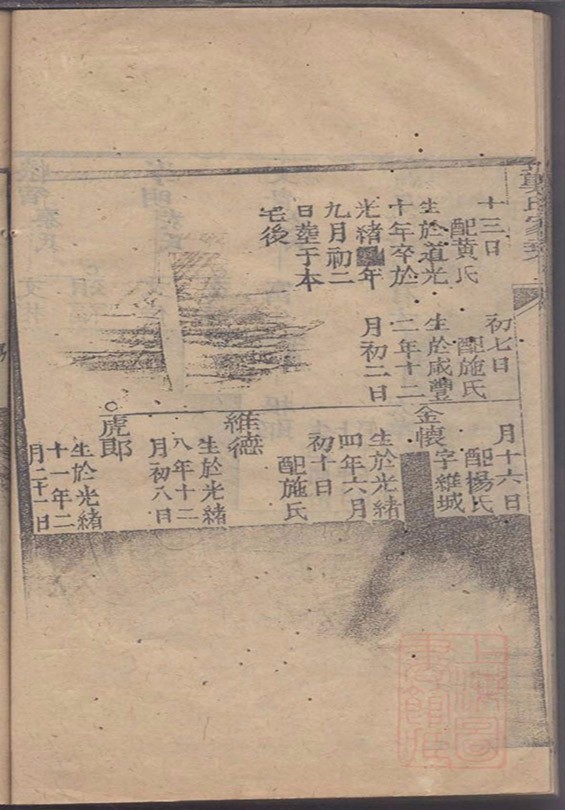 鄭氏家
十三日
配黃氏
生於道光
十年卒於
光緒年
九月初二
日塟于本
宅後
初七日
配施氏
生於咸豐
二年十二
月初二日
月十六日
配楊氏
金懷
字維城
生於光緒
四年六月
初十日
配施氏
維德
生於光緒
八年十二
月初八日
虎郎
生於光緒
十一年二
月二十二日
上海圖
書館藏